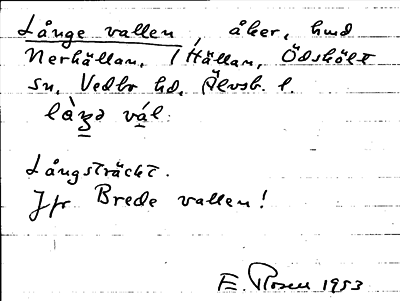 Långe vallen, åker, hmd
Nerhällan, / Hällan, Ödskölt
sn, Vedbo hd, Älvsb. l.
làŋə vál
Långsträckt.
Jfr Brede vallen!
E. Rosell 1953